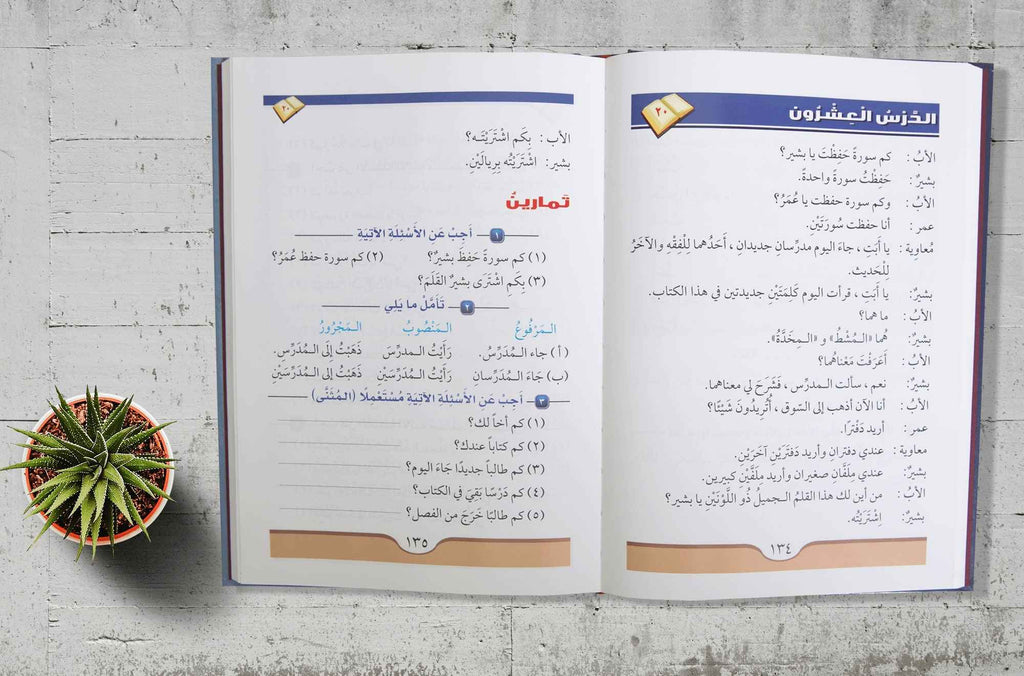 الدَّرْسُ الْعِشْرُونَ
٢٠
الأبُ : كم سورةً حَفِظْتَ يا بشير؟
بشيرٌ : حَفِظْتُ سورةً واحدةً.
الأبُ : وكم سورة حفظت يا عُمَرُ؟
عمر : أنا حفظت سُورَتَيْنِ.
مُعاوية : يا أَبَتِ ، جاءَ اليوم مدرِّسانِ جديدانِ ، أَحَدُهما لِلْفِقْهِ والآخَرُ
لِلْحَديث.
بشيرٌ: يا أَبَتِ ، قرأت اليوم كَلِمَتَيْنِ جديدتين في هذا الكتاب.
الأبُ : ما هما؟
بشيرٌ: هُما «الـمُشْطُ» و «الـمِخَدَّةُ».
الأبُ : أَعَرَفْتَ مَعْناهُما؟
بشيرٌ: نعم ، سألت الـمدرِّس ، فَشَرَحَ لي معناهما.
الأبُ : أنا الآن أذهب إلى السّوق ، أَتُرِيدُونَ شَيْئًا؟
عمر : أريد دَفْتَرًا.
معاوية : عندي دفتران وأريد دَفْتَرَيْنِ آخَرَيْنِ.
بشيرٌ: عندي مِلَفَّانِ صغيران وأريد مِلَفَّيْنِ كبيرين.
الأبُ : من أين لك هذا القلمُ الـجميلُ ذُو اللَّوْنَيْنِ يا بشير؟
بشيرٌ: اِشْتَرَيْتُه.
١٣٤
٢٠
الأب : بِكَم اشْتَرَيْتَـه؟
بشير: اشْتَرَيْتُه بِرِيالَيْنِ.
تَمارينُ
١ – أَجِبْ عَنِ الأَسْئِلَةِ الآتِيَةِ
(١) كم سورةً حَفِظَ بشيرٌ؟ (٢) كم سورة حفظ عُمَرُ؟
(٣) بِكَمِ اشْتَرَى بشيرٌ القَلَمَ؟
٢ – تَأَمَّلْ ما يَلِي
الـمَرْفُوعُ الـمَنْصُوبُ الـمَجْرُورُ
(أ) جاء الـمُدَرِّسُ. رَأَيْتُ الـمدرِّسَ ذَهَبْتُ إلَى الـمُدَرِّسِ.
(ب) جَاءَ الـمُدَرِّسان رَأَيْتُ الـمُدَرِّسَيْن ذَهَبْتُ إلَى الـمُدَرِّسَيْن
٣ – أَجِبْ عَنِ الأَسْئِلَةِ الآتِيَةِ مُسْتَعْمِلًا (المُثَنَّى)
(١) كم أخاً لك؟
(٢) كم كتاباً عندك؟
(٣) كم طالباً جديدًا جَاءَ اليوم؟
(٤) كم دَرْسًا بَقِيَ في الكتاب؟
(٥) كم طالبًا خَرَجَ من الفصل؟
١٣٥